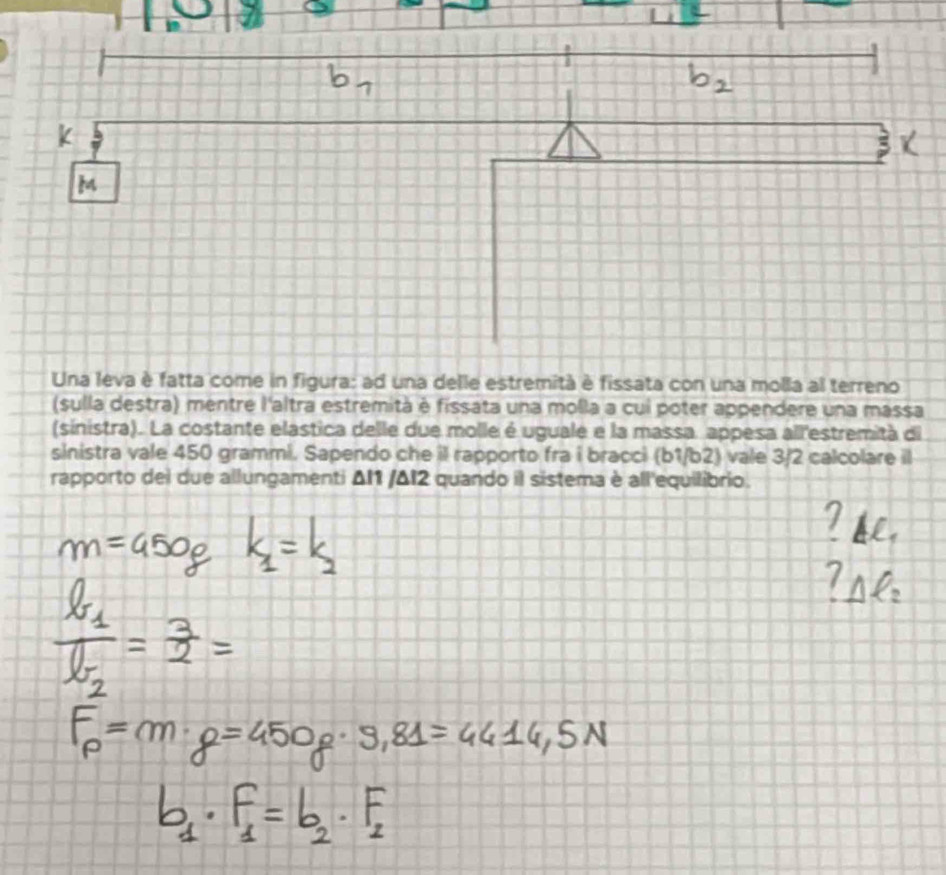 b₁ b₂
K K
M
Una leva è fatta come in figura: ad una delle estremità è fissata con una molla al terreno
(sulla destra) mentre l'altra estremità è fissata una molla a cui poter appendere una massa
(sinistra). La costante elastica delle due molle é uguale e la massa appesa all'estremità di
sinistra vale 450 grammi. Sapendo che il rapporto fra i bracci (b1/b2) vale 3/2 calcolare il
rapporto dei due allungamenti Δl1 /Δl2 quando il sistema è all'equilibrio.
m = 450g k₁ = k₂
? Δl₁
? Δl₂
b₁/b₂ = 3/2 =
Fₚ = m · g = 450g · 9,81 = 4414,5 N
b₁ · F₁ = b₂ · F₂